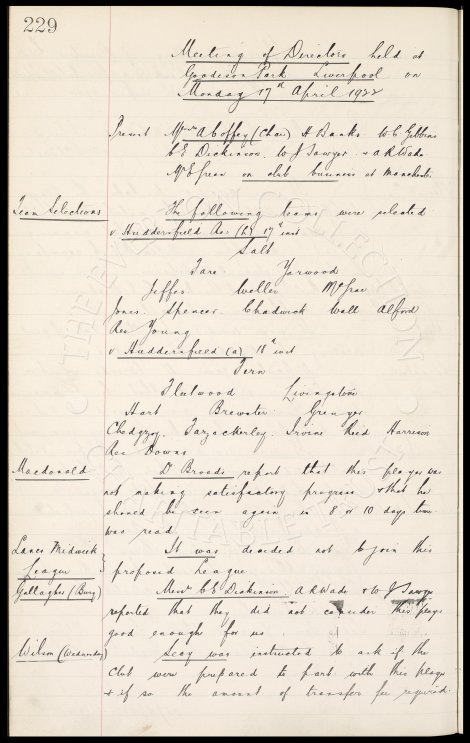 229
Meeting of Directors held at
Goodison Park Liverpool on
Monday 17th April 1922
Present Messrs A Coffey (Chair) H Banks W C Gibbins
C E Dickinson W J Sawyer & A R Wade
Mr E Green on club business at Manchester
Team Selections The following teams were selected
v Huddersfield Res (H) 17th inst
Salt
Tare Yarwood
Jeffes Weller McGrae
Jones Spencer Chadwick Wall Alford
Res Young
v Huddersfield (a) 18th inst
Fern
Fleetwood Livingstone
Hart Brewster Grenyer
Chedgzoy Forzackerley Irvine Reid Harrison
Res Downs
Macdonald Dr Broads report that this player was
not making satisfactory progress & that he
should be seen again in 8 or 10 days time
was read
Lancs Midweek League It was decided not to join this
proposed League
Gallagher (Bury) Messrs C E Dickinson A R Wade & W J Sawyer
reported that they did not consider this player
good enough for us
Wilson (Wednesday) Secy was instructed to ask if the
Club were prepared to part with this player
& if so the amount of transfer fee required.
THE EVERTON COLLECTION
CHARITABLE TRUST